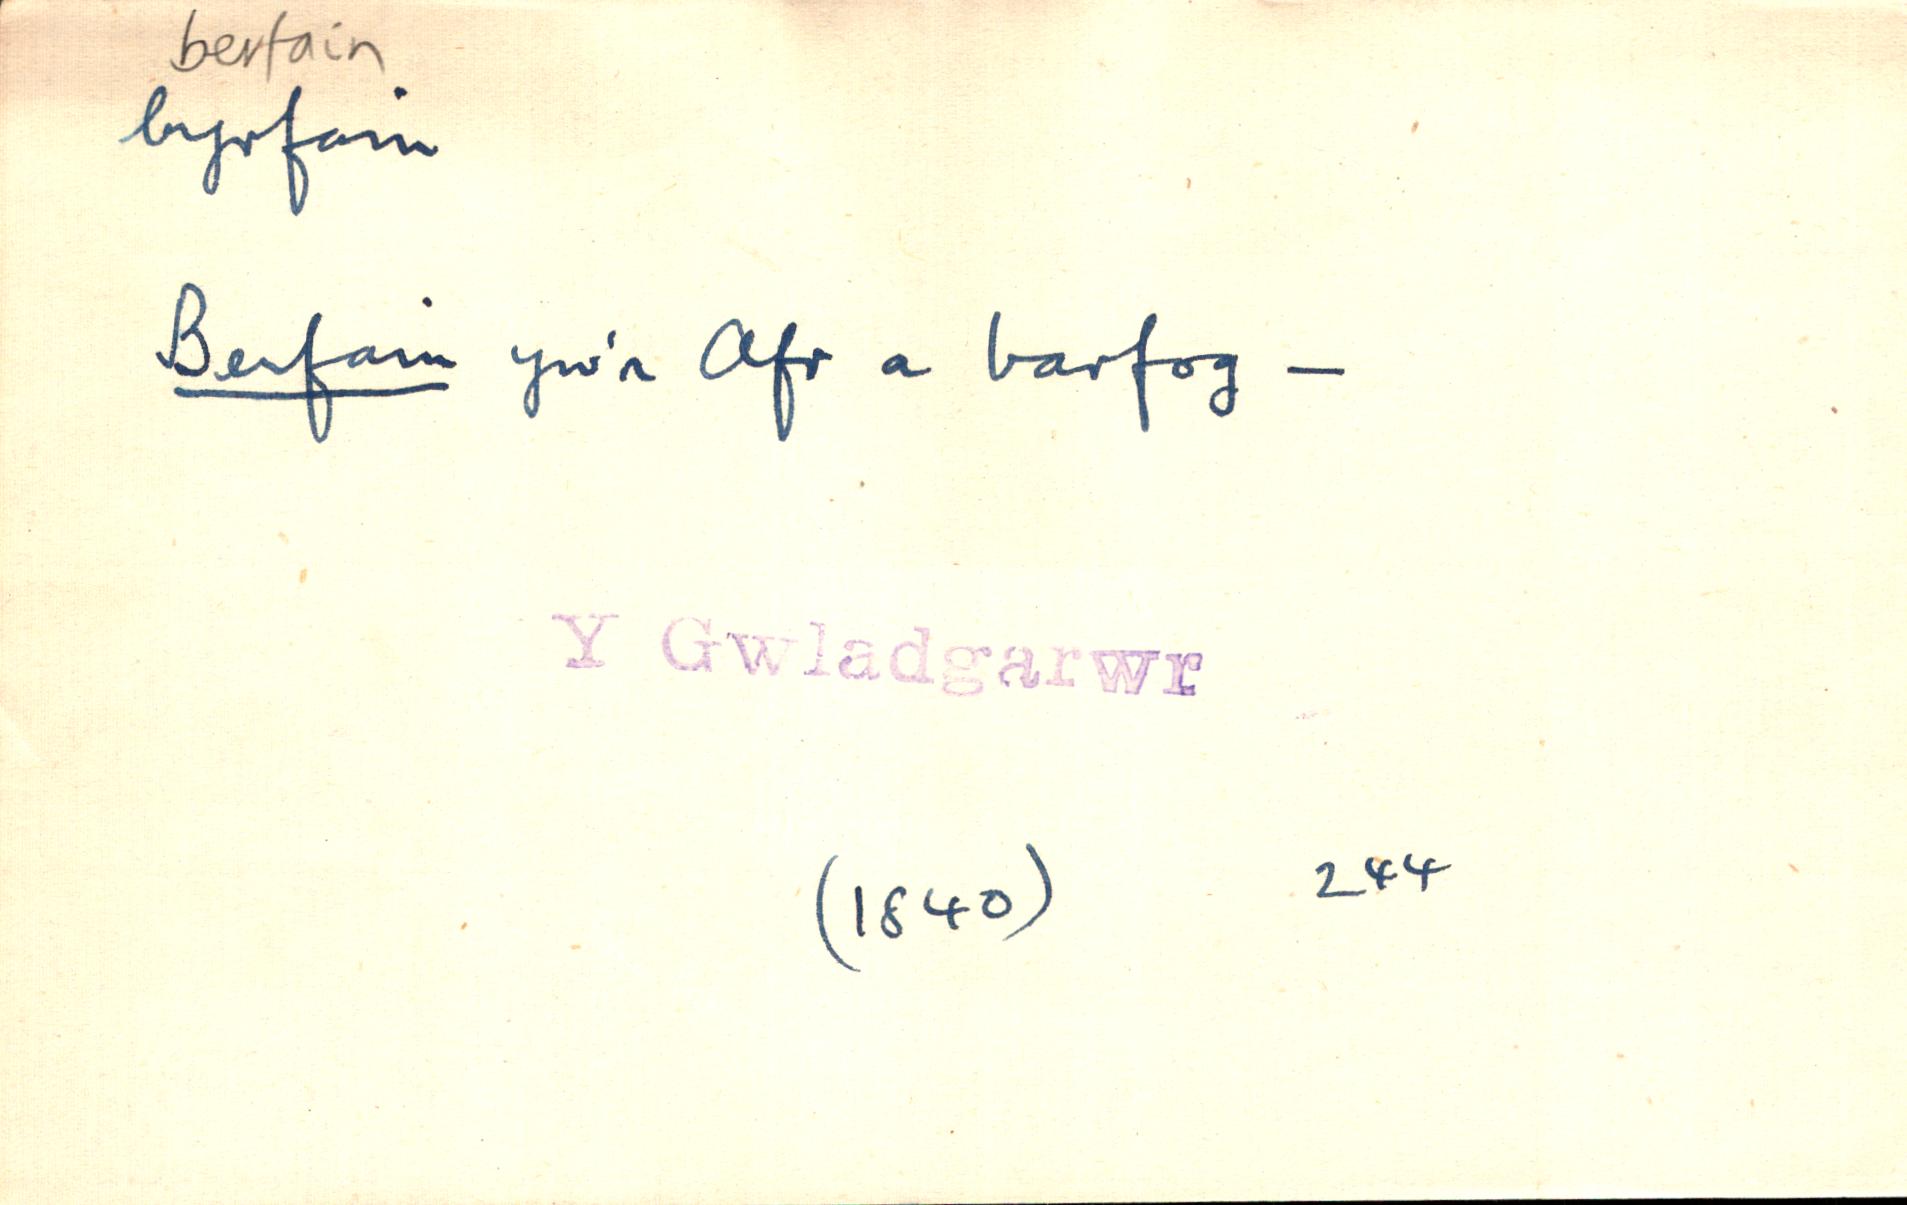 berfain
byrfain
Berfain yw'r Afr a barfog —
Y Gwladgarwr
(1840) 244